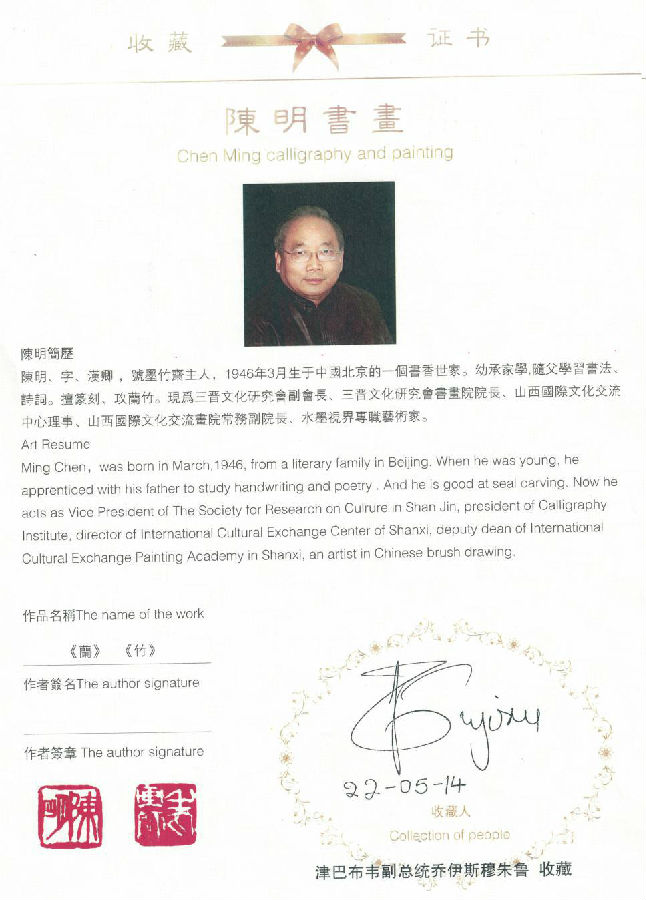 收藏 证书
陳明書畫
Chen Ming calligraphy and painting
陳明簡歷
陳明、字、漢卿，號墨竹齋主人，1946年3月生于中國北京的一個書香世家。幼承家學,隨父學習書法、
詩詞。擅篆刻、攻蘭竹。現爲三晋文化研究會副會長、三晋文化研究會書畫院院長、山西國際文化交流
中心理事、山西國際文化交流畫院常務副院長、水墨視界專職藝術家。
Art Resume
Ming Chen，was born in March,1946, from a literary family in Beijing. When he was young, he
apprenticed with his father to study handwriting and poetry . And he is good at seal carving. Now he
acts as Vice President of The Society for Research on Culrure in Shan Jin, president of Calligraphy
Institute, director of International Cultural Exchange Center of Shanxi, deputy dean of International
Cultural Exchange Painting Academy in Shanxi, an artist in Chinese brush drawing.
作品名稱The name of the work
《蘭》 《竹》
作者簽名The author signature
作者簽章 The author signature
陳明
22-05-14
收藏人
Collection of people
津巴布韦副总统乔伊斯穆朱鲁 收藏